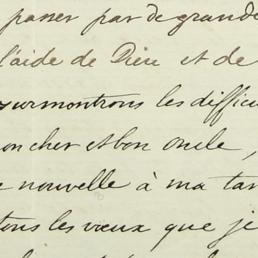 passer par de grande
l'aide de Dieu et de
surmontrons les difficu
mon cher et bon oncle,
nouvelle à ma tan
tous les vœux que je